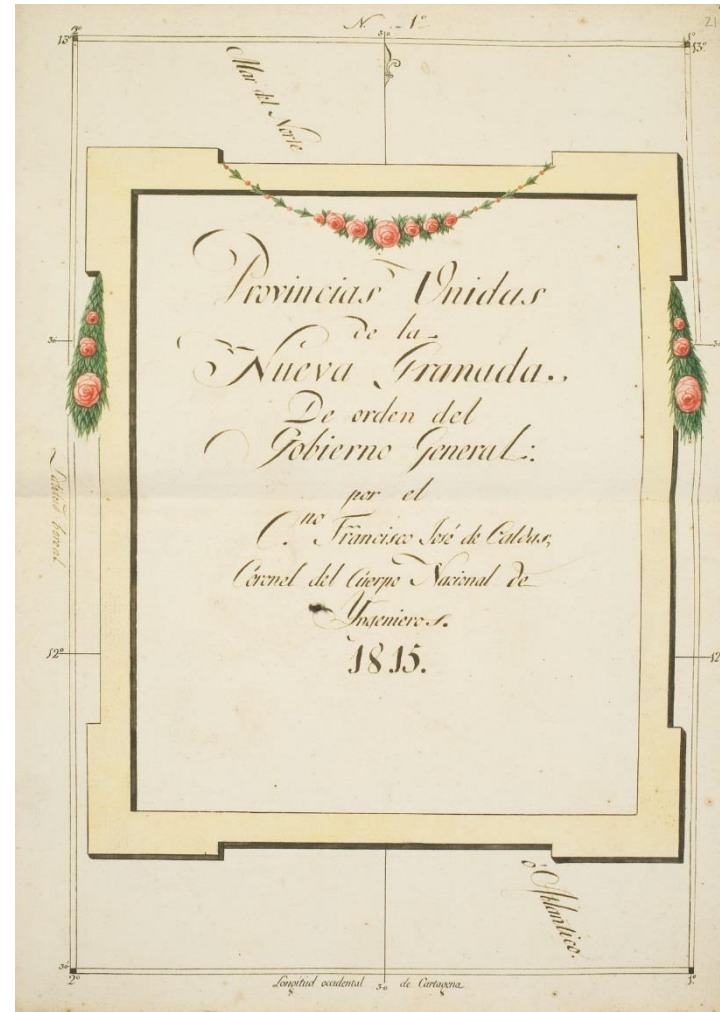 N. 1º
21
2º
30
1º
13º
13º
Mar del Norte
Provincias Unidas
de la
Nueva Granada.
De orden del
Gobierno General:
por el
C.no Francisco José de Caldas,
Coronel del Cuerpo Nacional de
Yngenieros.
1815.
30
30
Latitud boreal
12º
12
ó Atlantico.
30
2º
Longitud occidental 30 de Cartagena
1º